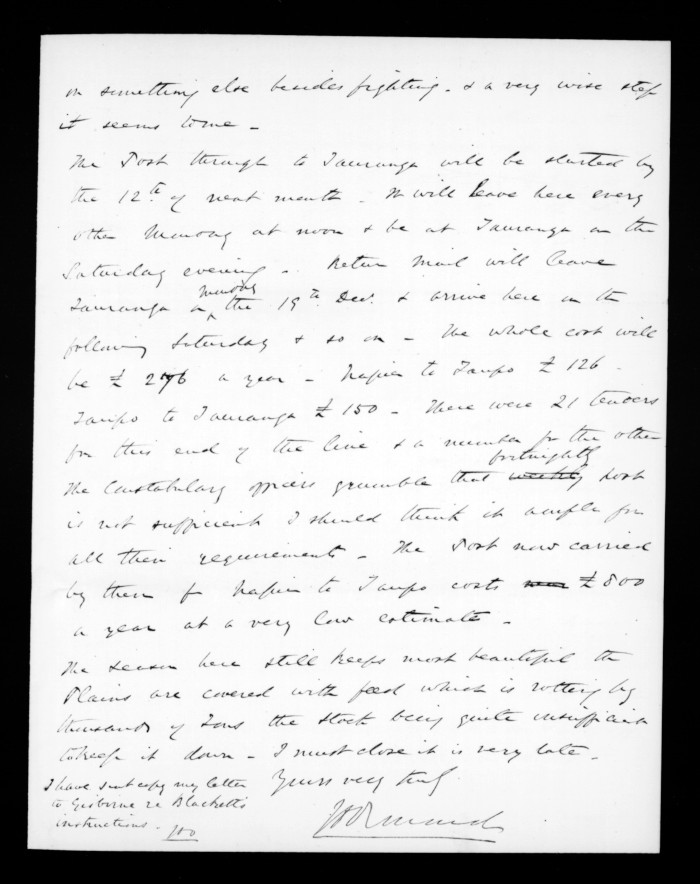 on something else besides fighting - & a very wise step
it seems to me -
The Post through to Tauranga will be started by
the 12th of next month - It will leave here every
other Monday at noon & be at Tauranga on the
Saturday evening - Return Mail will leave
Tauranga on Monday the 19th Decr. & arrive here on the
following Saturday & so on - The whole cost will
be £276 a year - Napier to Taupo £126 -
Taupo to Tauranga £150 - There were 21 tenders
for this end of the line & a number for the other
The Constabulary officers grumble that weekly fortnightly post
is not sufficient I should think it ample for
all their requirements - The Post now carried
by them fr Napier to Taupo costs £800
a year at a very low estimate -
The season here still keeps most beautiful the
Plains are covered with feed which is rotting by
thousands of Tons the stock being quite insufficient
to keep it down - I must close it is very late -
Yours very truly
JD Ormond
I have sent copy my letter
to Gisborne re Blackett's
instructions - JDO